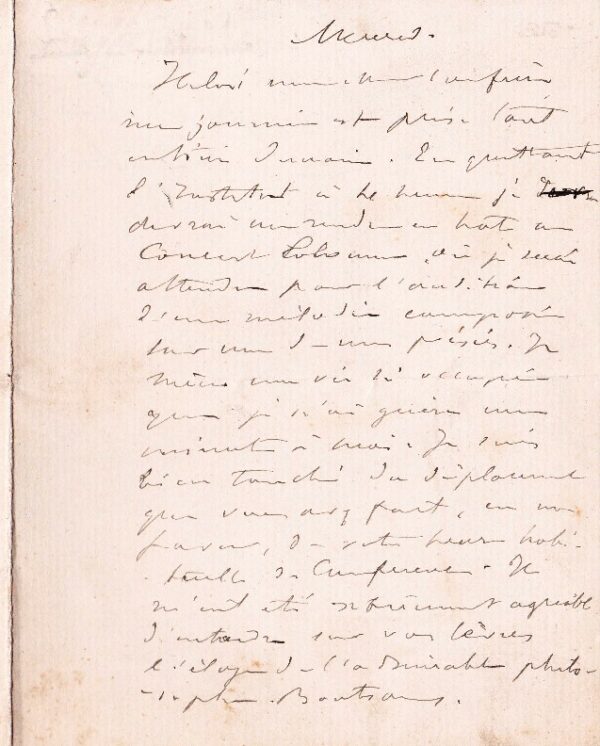 Mercredi.
Hélas! mon cher Confrère
ma journée est prise tout
entière demain. En quittant
l'Institut à 4 heures je
devrai me rendre en hâte au
Concert Colonne, où je serai
attendu pour l'audition
d'une mélodie composée
sur une de mes poésies. Je
mène une vie si occupée
que je n'ai guère une
minute à moi. Je suis
bien touché du déplacement
que vous avez fait, en ma
faveur, de votre heure habi-
tuelle de Conférence. Il
m'eût été extrêmement agréable
d'entendre sur vos lèvres
l'éloge de l'admirable philo-
sophe Boutroux.